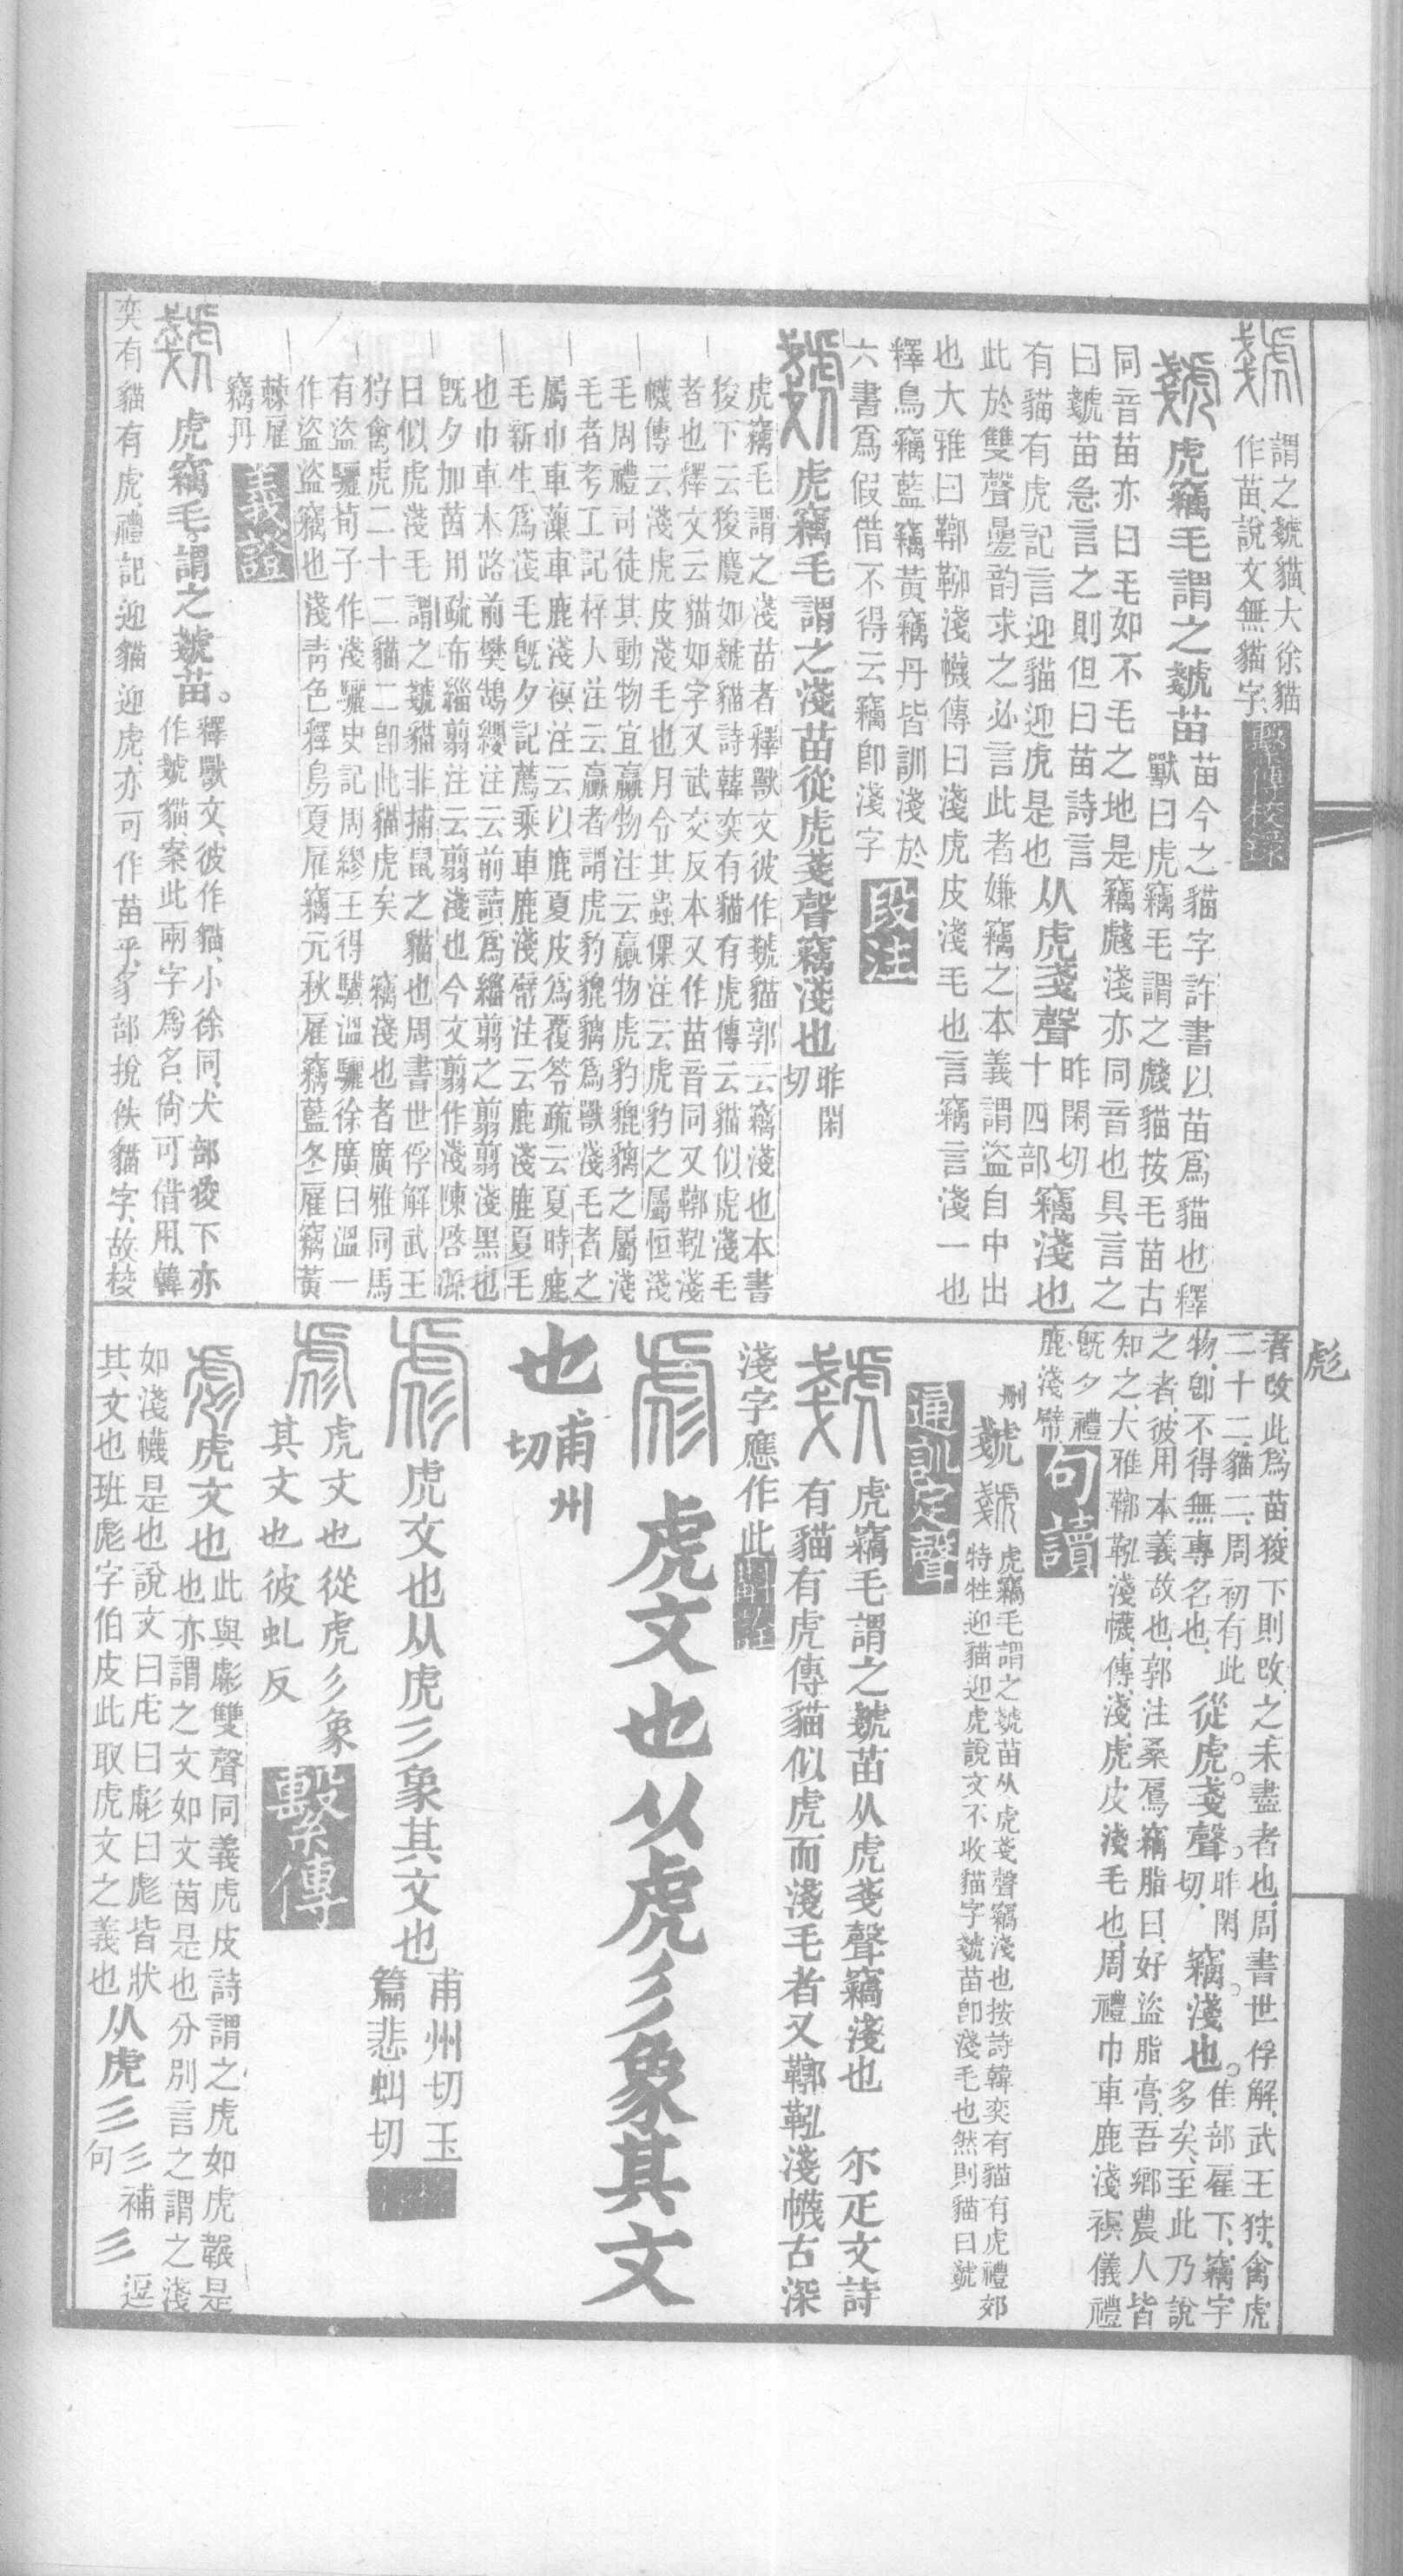 謂之虦貓大徐貓
作苗說文無貓字
繫傳校錄
虎竊毛謂之虦苗
苗今之貓字許書以苗爲貓也釋
獸曰虎竊毛謂之虥貓按毛苗古
同音苗亦曰毛如不毛之地是竊虥淺亦同音也具言之
曰虦苗急言之則但曰苗詩言
有貓有虎記言迎貓迎虎是也
从虎戔聲
昨閑切
十四部
竊淺也
此於雙聲曡韵求之必言此者嫌竊之本義謂盜自中出
也大雅曰鞹鞃淺幭傳曰淺虎皮淺毛也言竊言淺一也
釋鳥竊藍竊黃竊丹皆訓淺於
六書爲假借不得云竊卽淺字
段注
虎竊毛謂之淺苗從虎戔聲竊淺也
昨閑
切
虎竊毛謂之淺苗者釋獸文彼作虦貓郭云竊淺也本書
狻下云狻麑如虦貓詩韓奕有貓有虎傳云貓似虎淺毛
者也釋文云貓如字又武交反本又作苗音同又鞹鞃淺
幭傳云淺虎皮淺毛也月令其蟲倮注云虎豹之屬恒淺
毛周禮司徒其動物宜臝物注云臝物虎豹貔貐之屬淺
毛者考工記梓人注云臝者謂虎豹貔貐爲獸淺毛者之
屬巾車藻車鹿淺䄙注云以鹿夏皮爲覆笭疏云夏時鹿
毛新生爲淺毛旣夕記薦乘車鹿淺幦注云鹿淺鹿夏毛
也巾車木路前樊鵠纓注云前讀爲緇翦之翦翦淺黑也
旣夕加茵用疏布緇翦注云翦淺也今文翦作淺陳啓源
曰似虎淺毛謂之虦貓非捕鼠之貓也周書世俘解武王
狩禽虎二十二貓二卽此貓虎矣 竊淺也者廣雅同馬
有盜驪荀子作淺驪史記周繆王得驥溫驪徐廣曰溫一
作盜盜竊也淺靑色釋鳥夏雇竊元秋雇竊藍冬雇竊黃
棘雇
竊丹
義證
虎竊毛謂之虦苗
釋獸文彼作貓小徐同犬部狻下亦
作虦貓案此兩字爲名尙可借用韓
奕有貓有虎禮記迎貓迎虎亦可作苗乎豕部捝佚貓字故校
彪
者改此爲苗狻下則改之未盡者也周書世俘解武王狩禽虎
二十二貓二周初有此
物卽不得無專名也
從虎戔聲
昨閑
切
竊淺也
隹部雇下竊字
多矣至此乃說
之者彼用本義故也郭注桑鳸竊脂曰好盜脂膏吾鄉農人皆
知之大雅鞹鞃淺幭傳淺虎皮淺毛也周禮巾車鹿淺䄙儀禮
旣夕禮
鹿淺幦
句讀
刪 虦
虎竊毛謂之虦苗从虎戔聲竊淺也按詩韓奕有貓有虎禮郊
特牲迎貓迎虎說文不收貓字虦苗卽淺毛也然則貓曰虦
通訓定聲
虎竊毛謂之虦苗从虎戔聲竊淺也 尒疋文詩
有貓有虎傳貓似虎而淺毛者又鞹鞃淺幭古深
淺字應作此
虎文也从虎彡象其文
也
甫州
切
虎文也从虎彡象其文也
甫州切玉
篇悲虯切
虎文也從虎彡象
其文也彼虬反
繫傳
虎文也
此與虨雙聲同義虎皮詩謂之虎如虎韔是
也亦謂之文如文茵是也分別言之謂之淺
如淺幭是也說文曰虍曰虨曰彪皆狀
其文也班彪字伯皮此取虎文之義也
从虎彡
彡補
句
彡
逗